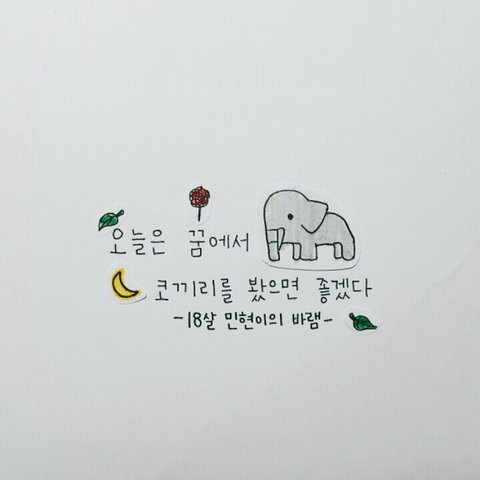 오늘은 꿈에서
코끼리를 봤으면 좋겠다
-18살 민현이의 바램-